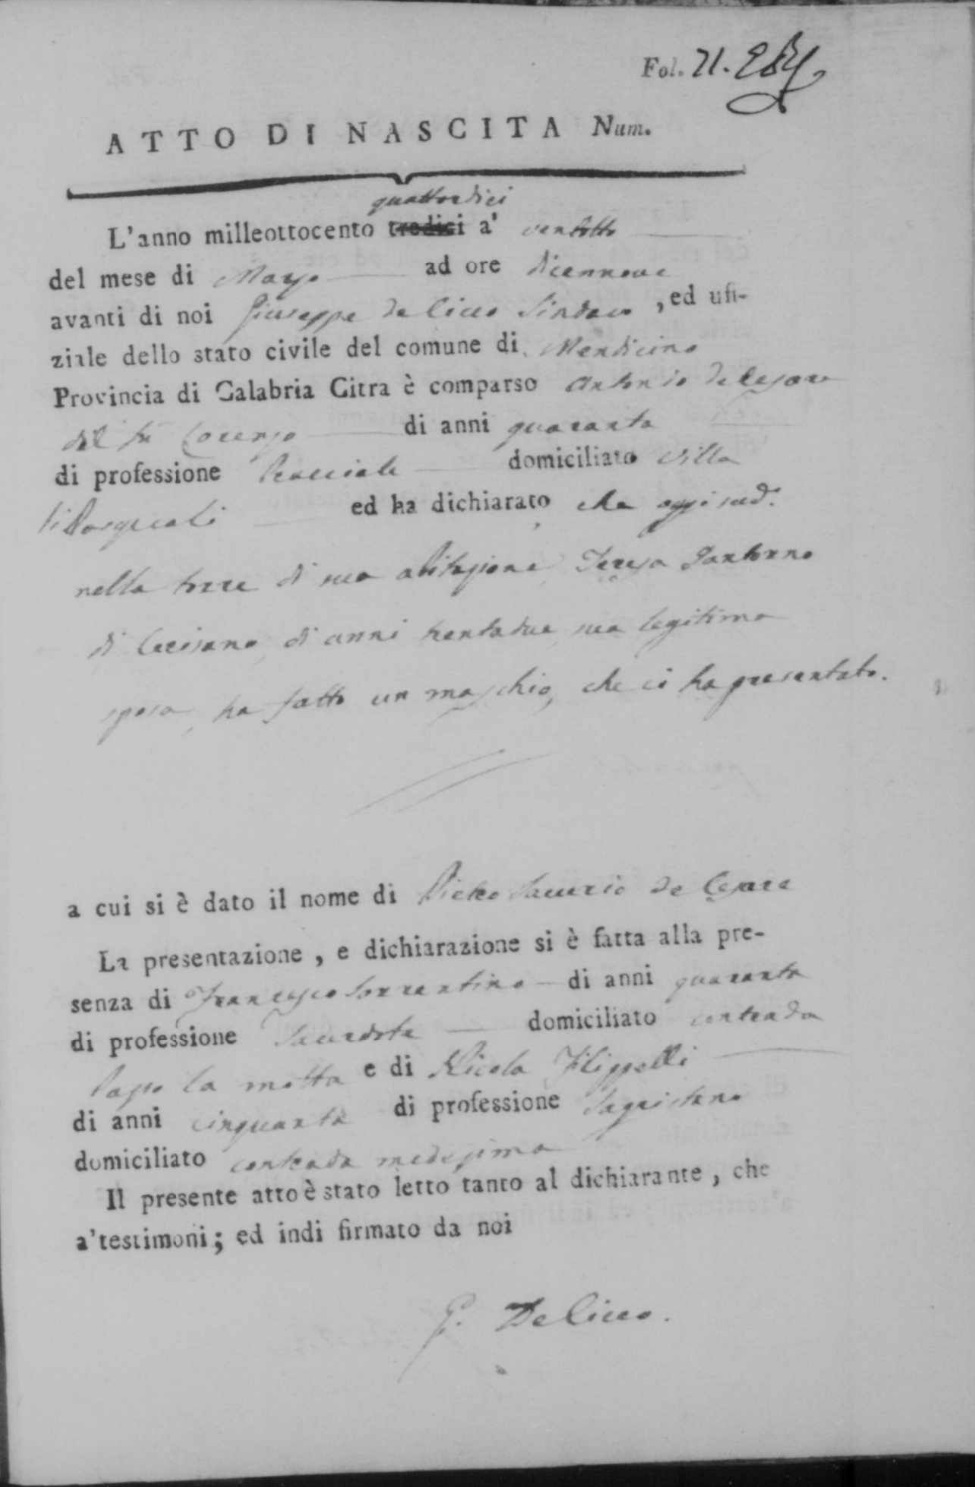 Fol. 71.
ATTO DI NASCITA Num.
quattordici
L'anno milleottocento tredici a' ventotto
del mese di Marzo ad ore diecennove
avanti di noi Giuseppe de Cicco Sindaco , ed ufi-
ziale dello stato civile del comune di Mendicino
Provincia di Calabria Citra è comparso Antonio de Cesare
del fu Lorenzo di anni quaranta
di professione Bracciale domiciliato Villa
ed ha dichiarato che oggi sud.
nella torre di sua abitazione Teresa Santorno
di Cerisano, di anni trentadue, sua legitima
sposa, ha fatto un maschio, che ci ha presentato.
a cui si è dato il nome di Pietro Saverio de Cesare
La presentazione , e dichiarazione si è fatta alla pre-
senza di Francesco Sorrentino di anni quaranta
di professione Sacerdote domiciliato contrada
la motta e di Nicola Filippelli
di anni cinquanta di professione Sagristano
domiciliato contrada medesima
Il presente atto è stato letto tanto al dichiarante , che
a'testimoni ; ed indi firmato da noi
G. De Cicco.